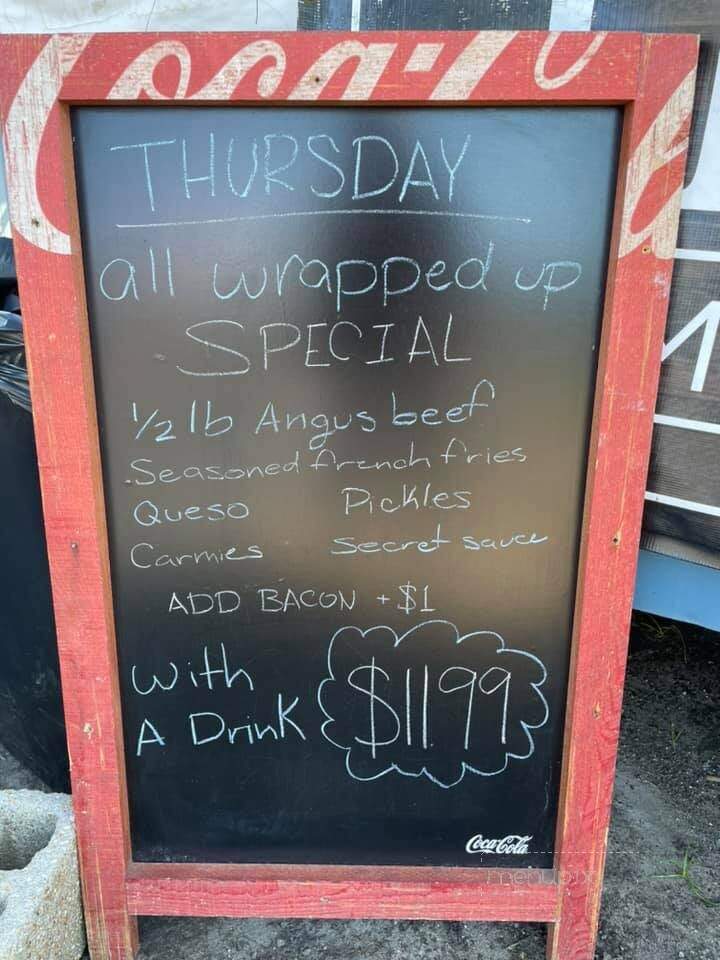 Coca-Cola
THURSDAY
all wrapped up
SPECIAL
1/2 lb Angus beef
Seasoned french fries
Queso Pickles
Carmies Secret sauce
ADD BACON +$1
With
A Drink $1199
Coca-Cola
menupix